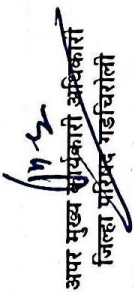 अपर मुख्य कार्यकारी अधिकारी
जिल्हा परिषद गडचिरोली